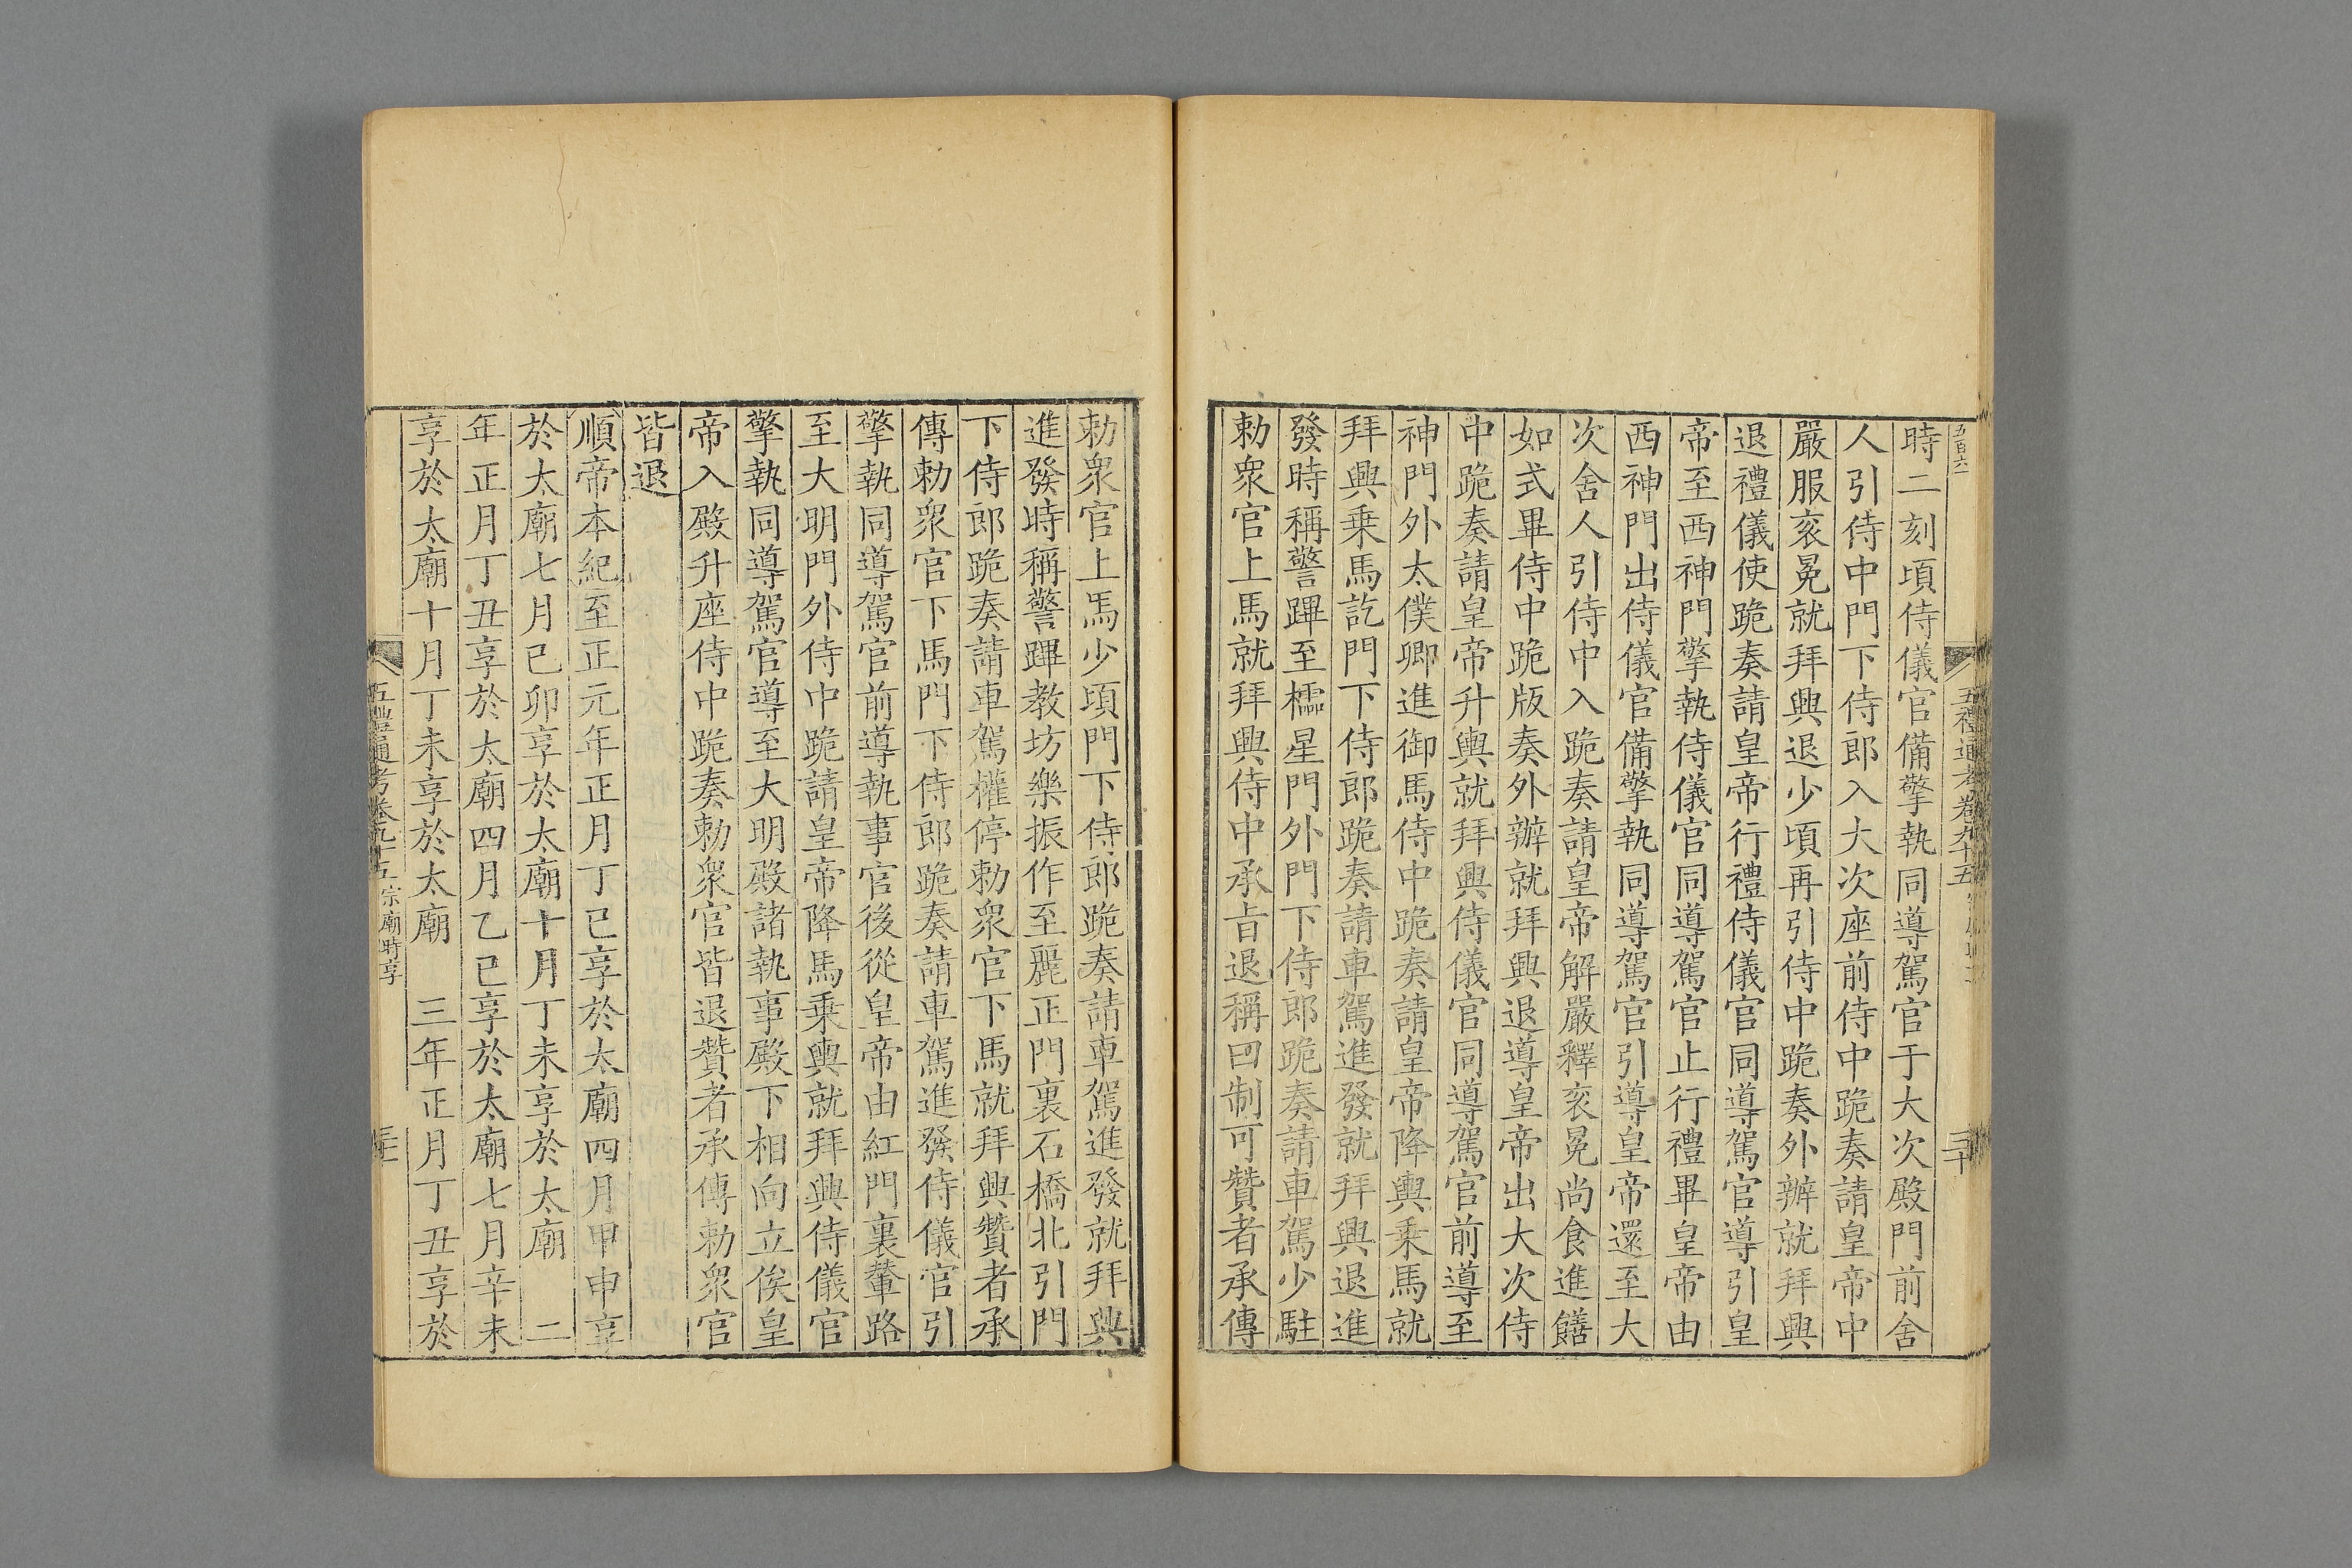 五百六
五禮通考卷九十五
三十
時二刻頃侍儀官備擎執同導駕官于大次殿門前舍
人引侍中門下侍郎入大次座前侍中跪奏請皇帝中
嚴服袞冕就拜興退少頃再引侍中跪奏外辦就拜興
退禮儀使跪奏請皇帝行禮侍儀官同導駕官導引皇
帝至西神門擎執侍儀官同導駕官止行禮畢皇帝由
西神門出侍儀官備擎執同導駕官引導皇帝還至大
次舍人引侍中入跪奏請皇帝解嚴釋袞冕尚食進饍
如式畢侍中跪版奏外辦就拜興退導皇帝出大次侍
中跪奏請皇帝升輿就拜興侍儀官同導駕官前導至
神門外太僕卿進御馬侍中跪奏請皇帝降輿乗馬就
拜興乗馬訖門下侍郎跪奏請車駕進發就拜興退進
發時稱警蹕至櫺星門外門下侍郎跪奏請車駕少駐
勅衆官上馬就拜興侍中承旨退稱曰制可贊者承傳
勅衆官上馬少頃門下侍郎跪奏請車駕進發就拜興
進發時稱警蹕教坊樂振作至麗正門裏石橋北引門
下侍郎跪奏請車駕權停勅衆官下馬就拜興贊者承
傳勅衆官下馬門下侍郎跪奏請車駕進發侍儀官引
擎執同導駕官前導執事官後從皇帝由紅門裏輦路
至大明門外侍中跪請皇帝降馬乗輿就拜興侍儀官
擎執同導駕官導至大明殿諸執事殿下相向立俟皇
帝入殿升座侍中跪奏勅衆官皆退贊者承傳勅衆官
皆退
順帝本紀至正元年正月丁巳享於太廟四月甲申享
於太廟七月己卯享於太廟十月丁未享於太廟　二
年正月丁丑享於太廟四月乙巳享於太廟七月辛未
享於太廟十月丁未享於太廟　三年正月丁丑享於
五禮通考卷九十五 宗廟時享